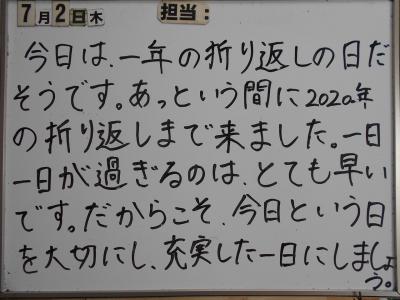 7月2日木 担当:
今日は、一年の折り返しの日だ
そうです。あっという間に2020年
の折り返しまで来ました。一日
一日が過ぎるのは、とても早い
です。だからこそ、今日という日
を大切にし、充実した一日にしましょ
う。